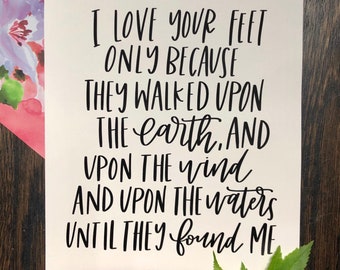 I LOVE YOUR FEET
ONLY BECAUSE
THEY WALKED UPON
THE earth, AND
UPON THE wind
AND UPON THE waters
UNTIL THEY found ME